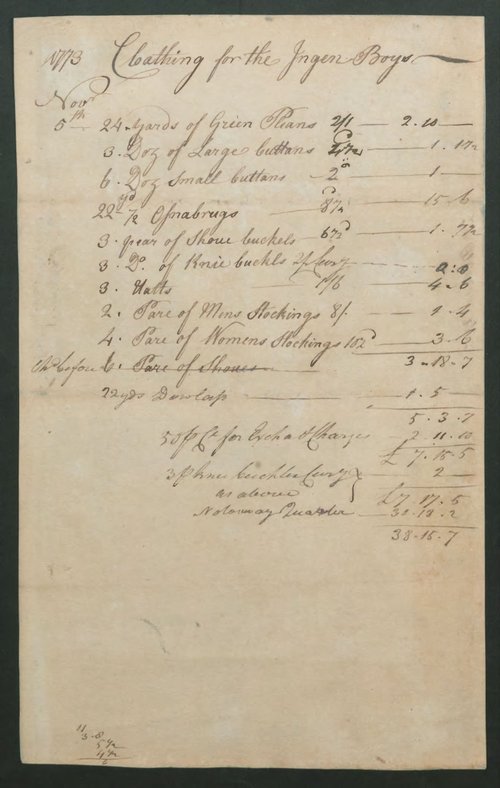 1773 Cloathing for the Ingen Boys
Novr
5th 24 yards of Green Plians 2/1 — 2.10 —
3 Doz of Large buttans 4½ — 1.1½
6 Doz Small buttans — 2d — 1 —
22 yd ½ Osnabrugs — 8½ — 15.6
3 pear of Shoue buckels 6½d — 1.7½
3 Do. of Knie buckls Curry 0:0
3 Hatts — 1/6 — 4.6
2 Pare of Mens Stockings 8/. — 1.4
4 Pare of Womens Stockings 10½d — 3.6
before 6 Pare of Shoues 3-18-7
22 yds Dowlap — 1.5 —
5.3.7
50 p Ct for Excha & Charges — 2.11.10
£7.15.5
3 p knie buckles Curry — 2 —
as above £7.17.5
Notoway Quarter — 30.18.2
38.15.7
11
3.8
5½
4½
6